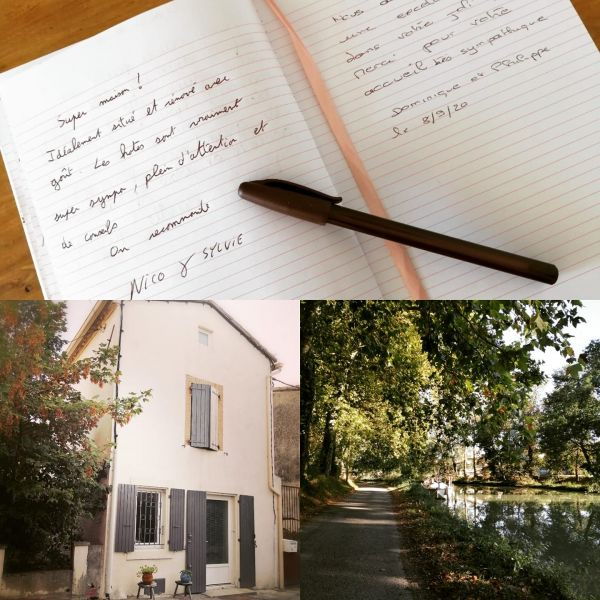 Super maison !
Idéalement situé et rénové avec
goût. Les hotes sont vraiment
super sympa, plein d'attention et
de conseils
On recommande
NICO & SYLVIE
Nous a
une excelle
dans votre joli
Merci pour votre
accueil très sympathique
Dominique et Philippe
le 8/9/20